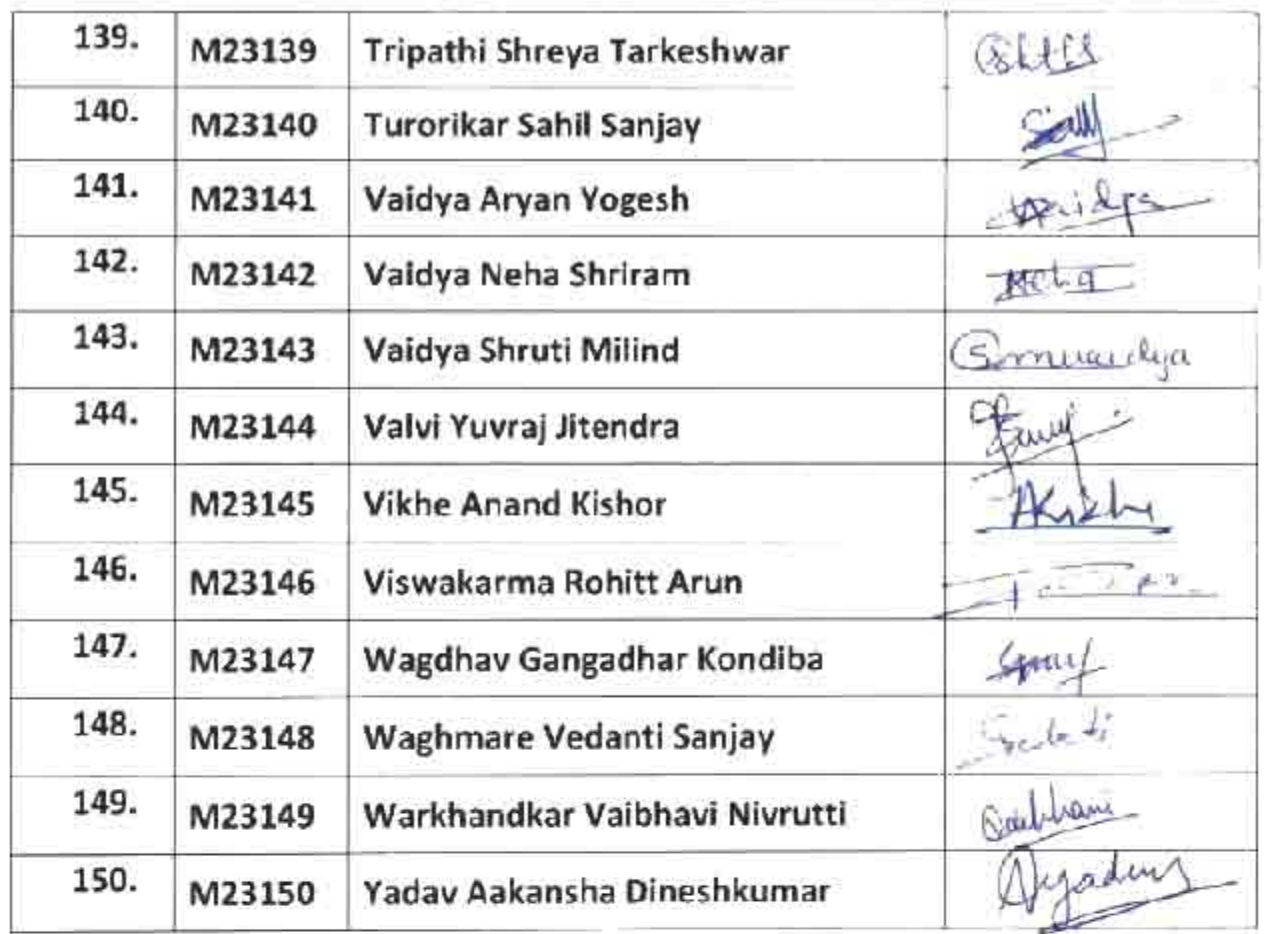 139. M23139 Tripathi Shreya Tarkeshwar
140. M23140 Turorikar Sahil Sanjay
141. M23141 Vaidya Aryan Yogesh Vaidya
142. M23142 Vaidya Neha Shriram Neha
143. M23143 Vaidya Shruti Milind Smvaidya
144. M23144 Valvi Yuvraj Jitendra
145. M23145 Vikhe Anand Kishor
146. M23146 Viswakarma Rohitt Arun
147. M23147 Wagdhav Gangadhar Kondiba
148. M23148 Waghmare Vedanti Sanjay
149. M23149 Warkhandkar Vaibhavi Nivrutti Vaibhavi
150. M23150 Yadav Aakansha Dineshkumar